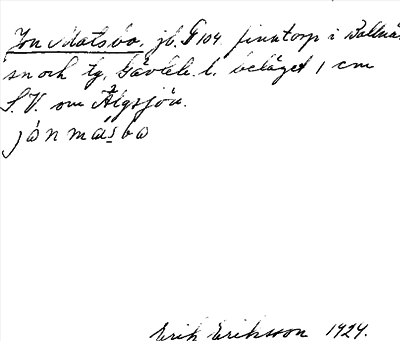 Jon Matsbo, jb. F 104 finntorp i Bollnäs
sn och tg, Gävleb. l. beläget 1 cm
S.V. om Älgsjön.
jȯn másbo
Erik Eriksson 1924.